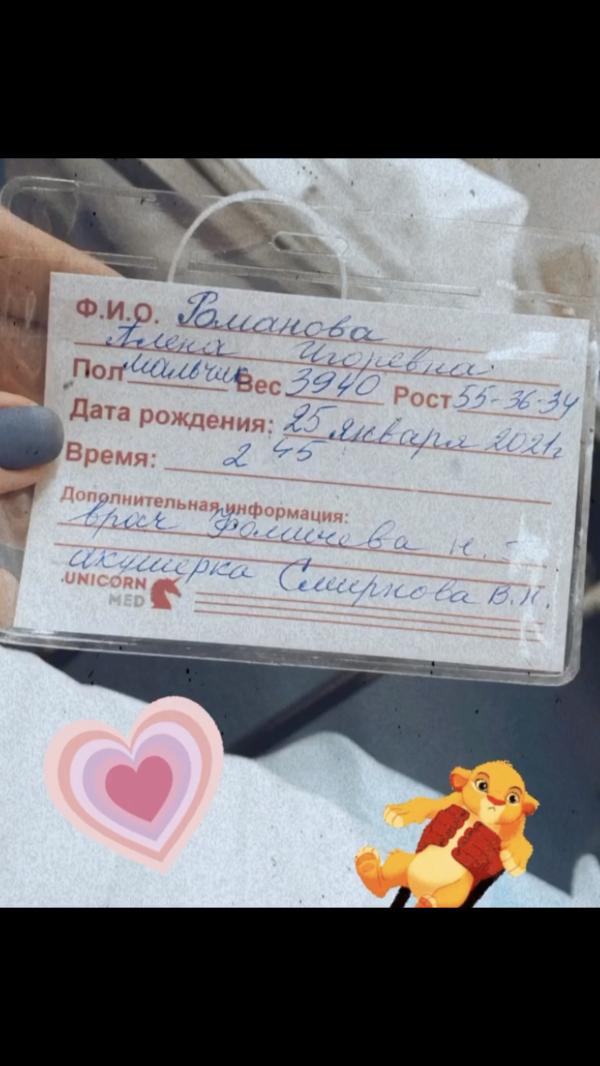 Ф.И.О. Романова
Алена Игоревна
Пол мальчик Вес 3940 Рост 55-36-34
Дата рождения: 25 января 2021г
Время: 2 45
Дополнительная информация:
врач Фомичева Н.
акушерка Смирнова В.Н.
UNICORN
MED